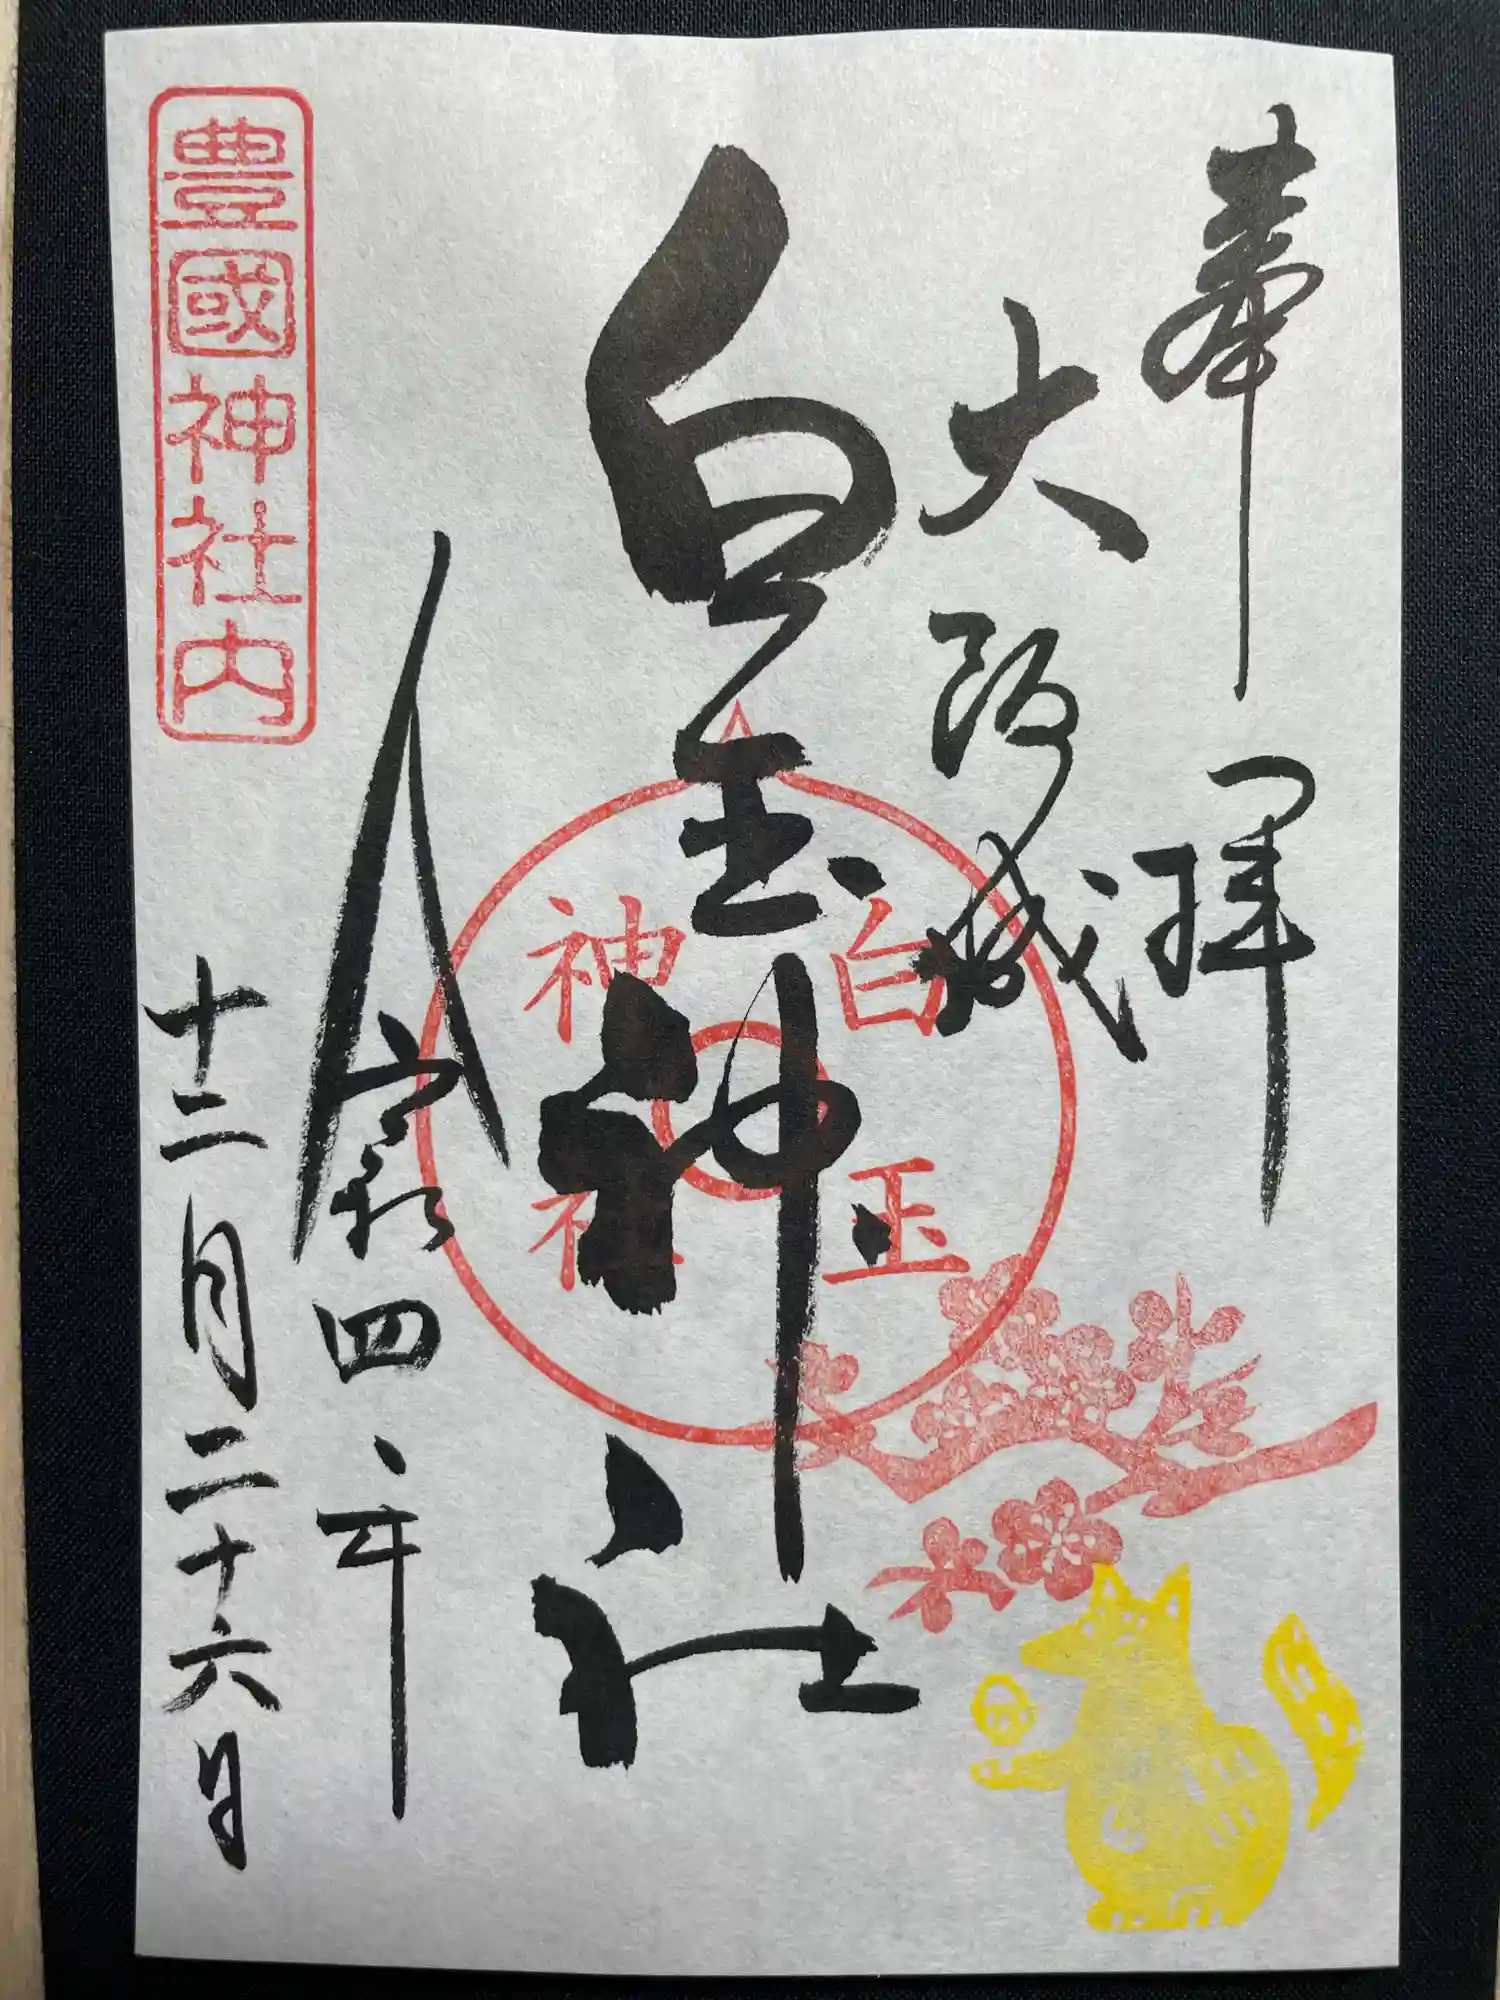 奉拝
大阪城
白玉神社
白玉
神社
令和四年
十二月二十六日
豊國神社内